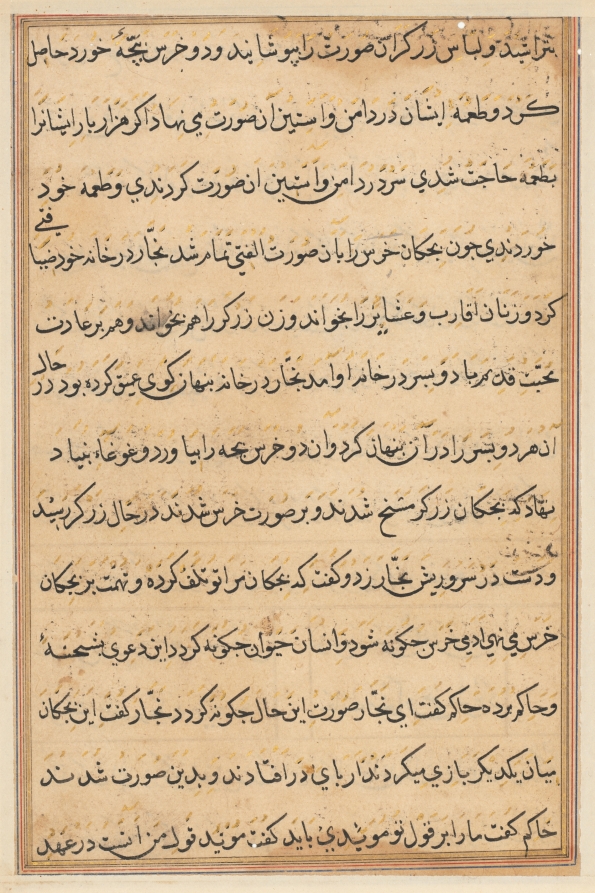 بتراشید و لباس زرگران صورت را پوشانید و دو خرس بچهٔ خورد حاصل
کرد و طعمه ایشان در دامن و استین ان صورت می نهاد اکر هزار بار ایشانرا
بطعمه حاجت شدی سر در دامن و استین ان صورت کردندی و طعمه خود
خوردندی جون بجکان خرس را بان صورت الفتی تمام شد نجّار در خانه خود ضیافتی
کرد و زنان اقارب و عشایر را بخواند و زن زرکر را هم بخواند و هم بر عادت
محبّت قدیم با دو بسر در خانه او آمد نجّار در خانه بنهان کوی عمیق کرده بود در حال
آن هر دو بسر را در آن بنهان کرد و ان دو خرس بجه را بیاورد و غوغاء بنیاد
نهاد که بجکان زرکر مسخ شدند و بر صورت خرس شدند در حال زرکر رسید
و دست در سر و ریش نجّار زد و کفت که بجکان مرا تو تلف کرده و تهمت بر بجکان
خرس می نهی ادمی خرس جکونه شود و انسان حیوان جکونه کردد این دعوی بشحنهٔ
و حاکم برده حاکم کفت ای نجّار صورت این حال جکونه کردد نجّار کفت این بجکان
میان یکدیکر بازی میکردند از بای در افتادند و بدین صورت شدند
حاکم کفت ما را بر قول تو مویدی باید کفت موید قول من انست در عهد